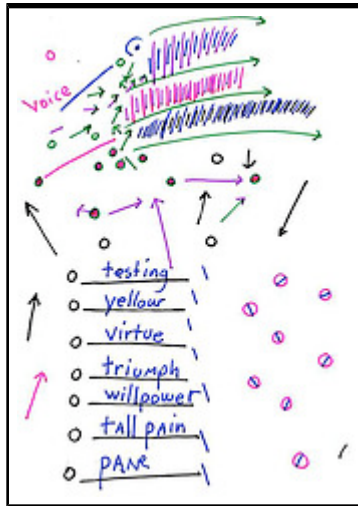 Voice
testing
yellow
virtue
triumph
willpower
tall pain